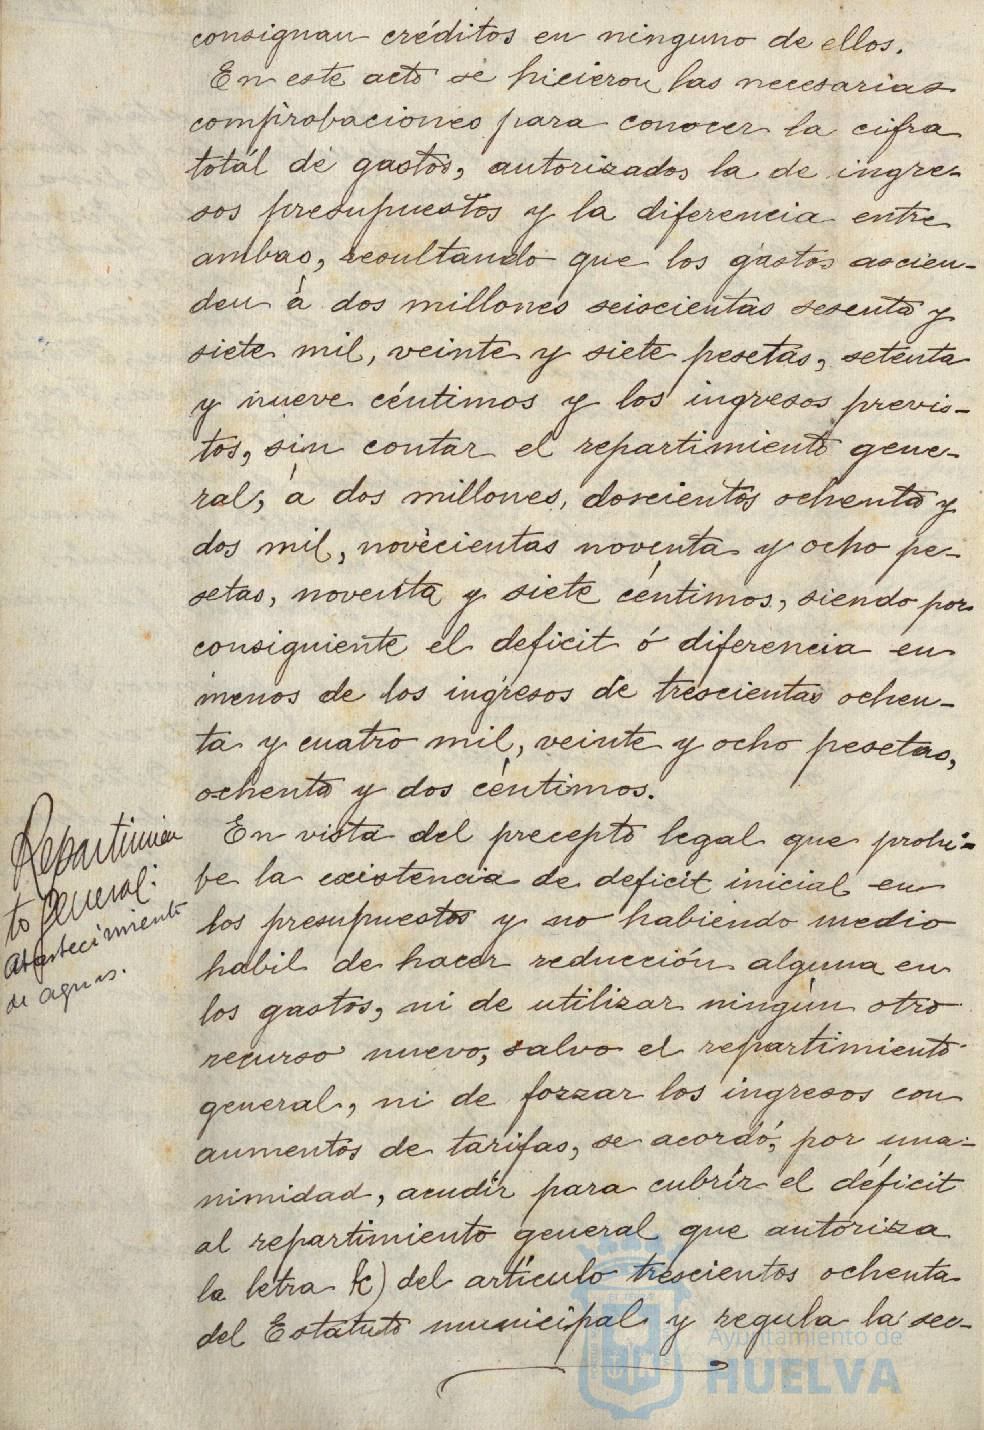 consignan créditos en ninguno de ellos.
En este acto se hicieron las necesarias
comprobaciones para conocer la cifra
total de gastos, autorizados la de ingre-
sos presupuestos y la diferencia entre
ambas, resultando que los gastos ascien-
den á dos millones seiscientas sesenta y
siete mil, veinte y siete pesetas, setenta
y nueve céntimos y los ingresos previs-
tos, sin contar el repartimiento gene-
ral, á dos millones, doscientos ochenta y
dos mil, novecientas noventa y ocho pe-
setas, noventa y siete céntimos, siendo por
consiguiente el deficit ó diferencia en
menos de los ingresos de trescientas ochen-
ta y cuatro mil, veinte y ocho pesetas,
ochenta y dos céntimos.
Repartimien
to general.
abastecimiento
de aguas.
En vista del precepto legal que prohi-
be la existencia de deficit inicial en
los presupuestos y no habiendo medio
habil de hacer reducción alguna en
los gastos, ni de utilizar ningún otro
recurso nuevo, salvo el repartimiento
general, ni de forzar los ingresos con
aumentos de tarifas, se acordó, por una-
nimidad, acudir para cubrir el déficit
al repartimiento general que autoriza
la letra k) del artículo trescientos ochenta
del Estatuto municipal y regula la sec-
Ayuntamiento de
HUELVA